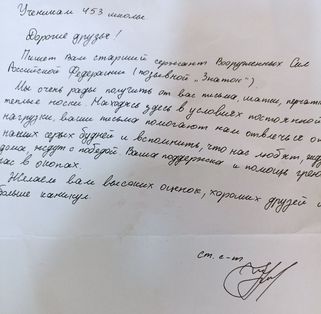 Ученикам 453 школы
Дорогие друзья!
Пишет Вам старший сержант Вооруженных Сил
Российской Федерации (позывной „Знаток")
Мы очень рады получить от вас письма, шапки,
теплые носки. Находясь здесь в условиях постоянной
нагрузки, ваши письма помогают нам отвлечься от
наших серых будней и вспомнить, что нас любят, ждут
дома, ждут с победой Ваша поддержка и помощь греют
нас в окопах.
Желаем вам высоких оценок, хороших друзей и
больше каникул.
ст. с-т